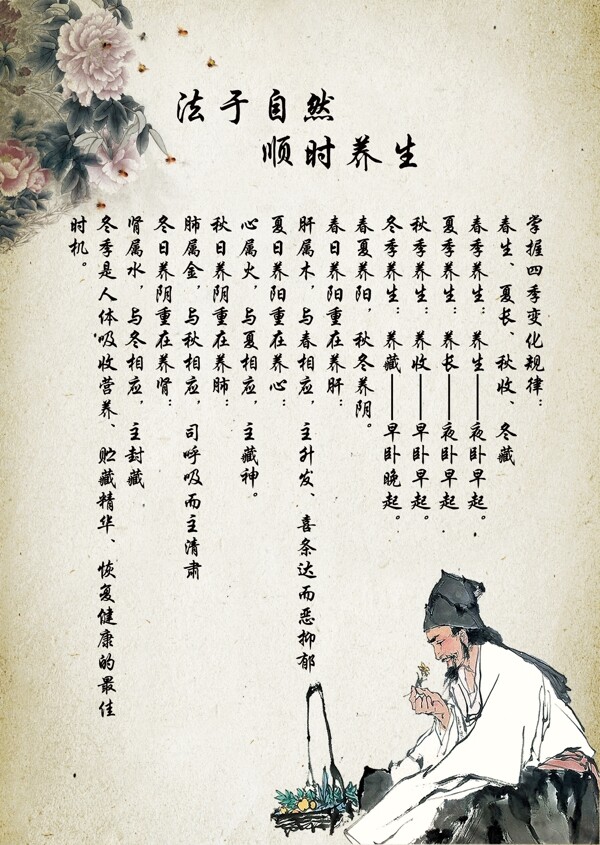 法于自然
顺时养生
掌握四季变化规律：
春生、夏长、秋收、冬藏
春季养生：养生——夜卧早起。
夏季养生：养长——夜卧早起
秋季养生：养收——早卧早起。
冬季养生：养藏——早卧晚起。
春夏养阳，秋冬养阴。
春日养阳重在养肝：
肝属木，与春相应，主升发、喜条达而恶抑郁
夏日养阳重在养心：
心属火，与夏相应，主藏神。
秋日养阴重在养肺：
肺属金，与秋相应，司呼吸而主清肃
冬日养阴重在养肾：
肾属水，与冬相应，主封藏
冬季是人体吸收营养、贮藏精华、恢复健康的最佳
时机。